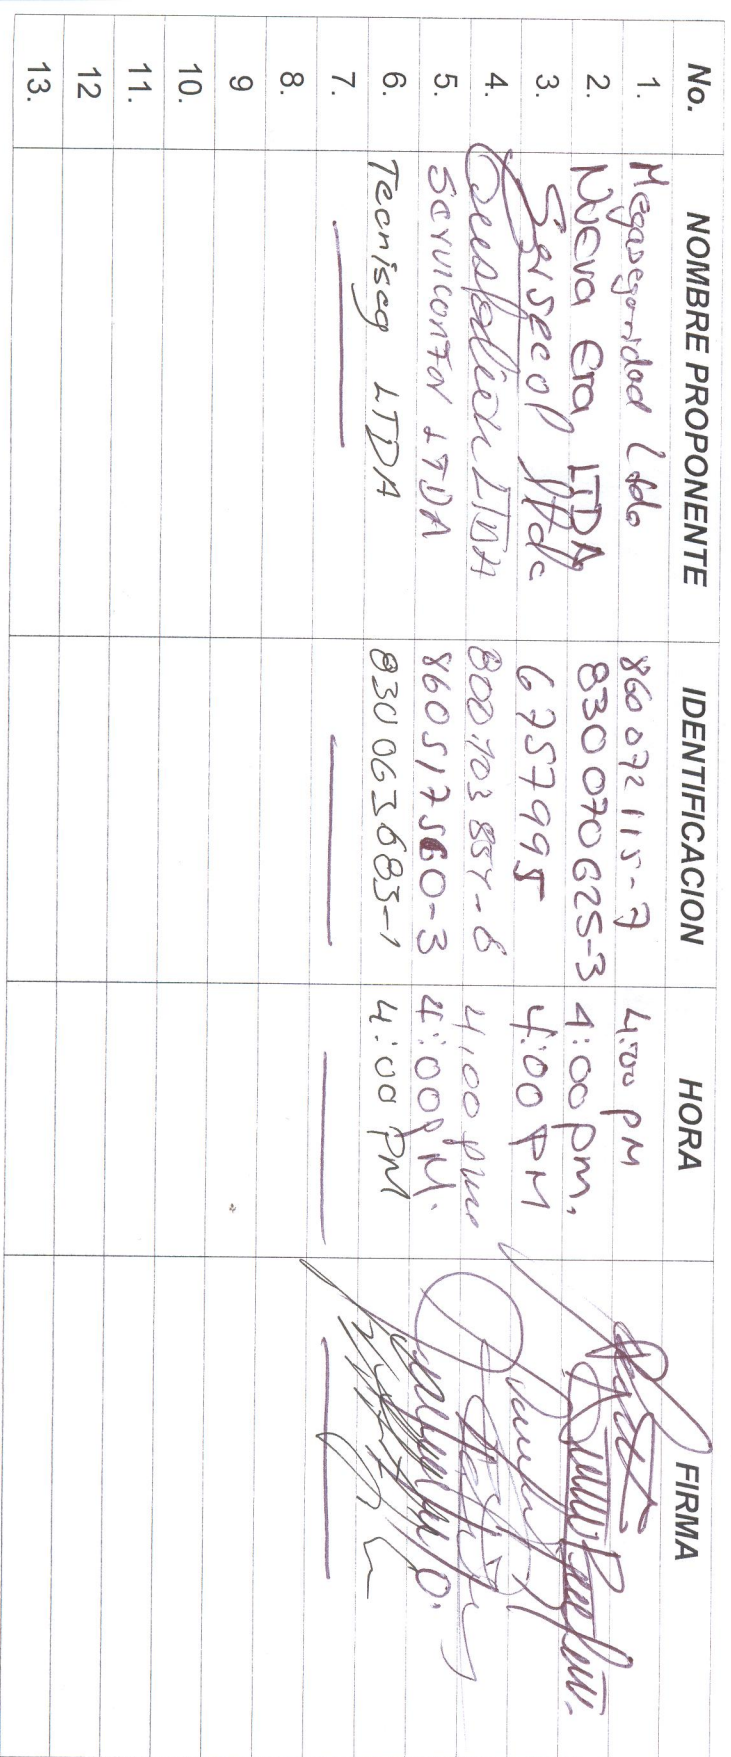 No. NOMBRE PROPONENTE IDENTIFICACION HORA FIRMA
1. Megaseguridad Ltda 860072115-7 4:00 PM
2. Nueva Era LTDA 830070625-3 4:00 pm.
3. Sersecol Ltda 6757995 4:00 PM
4. LTDA 4:00 pm
5. Servicontol LTDA 860517560-3 4:00 PM.
6. Tecniseg LTDA 830063683-1 4:00 PM
7.
8.
9
10.
11.
12
13.